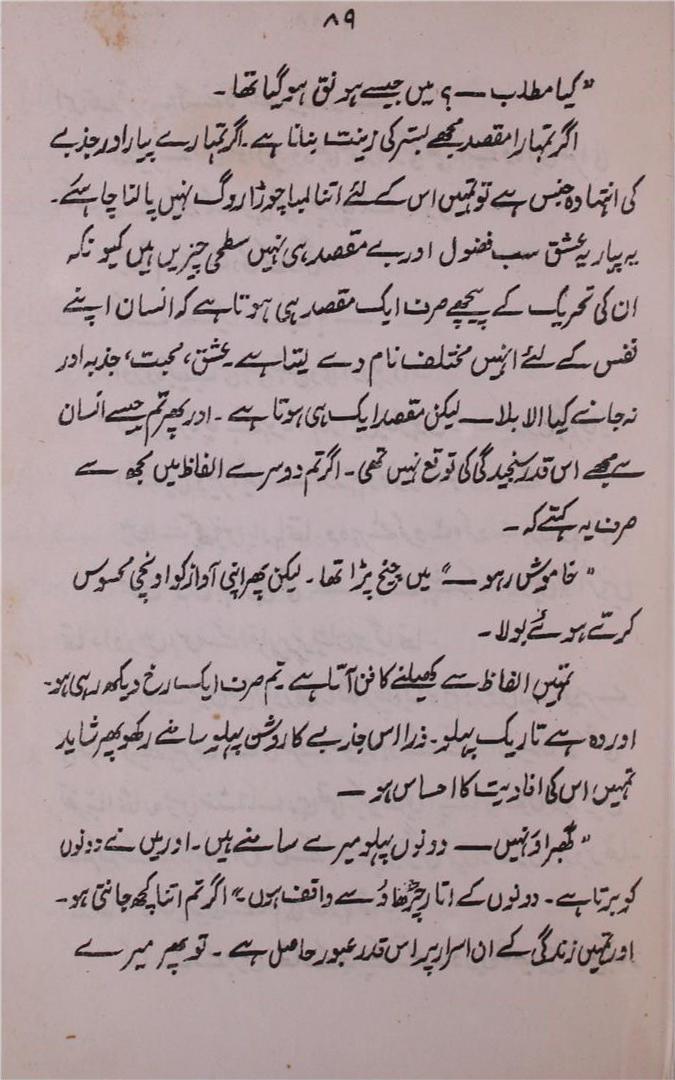 ۸۹
”کیا مطلب — ؟ میں جیسے ہونق ہو گیا تھا۔
اگر تمہارا مقصد مجھے بستر کی زینت بنانا ہے۔ اگر تمہارے پیار اور جذبے
کی انتہا وہ جنس ہے تو تمہیں اس کے لئے اتنا لمبا چوڑا روگ نہیں پالنا چاہئے۔
یہ پیار یہ عشق سب فضول اور بے مقصد ہی نہیں سطحی چیزیں ہیں کیونکہ
ان کی تحریک کے پیچھے صرف ایک مقصد ہی ہوتا ہے کہ انسان اپنے
نفس کے لئے انہیں مختلف نام دے لیتا ہے۔ عشق، محبت، جذبہ اور
نہ جانے کیا الا بلا — لیکن مقصد ایک ہی ہوتا ہے۔ اور پھر تم جیسے انسان
سے مجھے اس قدر سنجیدگی کی توقع نہیں تھی۔ اگر تم دوسرے الفاظ میں مجھ سے
صرف یہ کہتے کہ۔
”خاموش رہو —“ میں چیخ پڑا تھا۔ لیکن پھر اپنی آواز کو اونچی محسوس
کرتے ہوئے بولا۔
تمہیں الفاظ سے کھیلنے کا فن آتا ہے۔ تم صرف ایک رخ دیکھ رہی ہو۔
اور وہ ہے تاریک پہلو۔ ذرا اس جذبے کا روشن پہلو سامنے رکھو پھر شاید
تمہیں اس کی افادیت کا احساس ہو —
”گھبراؤ نہیں — دونوں پہلو میرے سامنے ہیں۔ اور میں نے دونوں
کو برتا ہے۔ دونوں کے اتار چڑھاؤ سے واقف ہوں“ اگر تم اتنا کچھ جانتی ہو۔
اور تمہیں زندگی کے ان اسرار پر اس قدر عبور حاصل ہے۔ تو پھر میرے